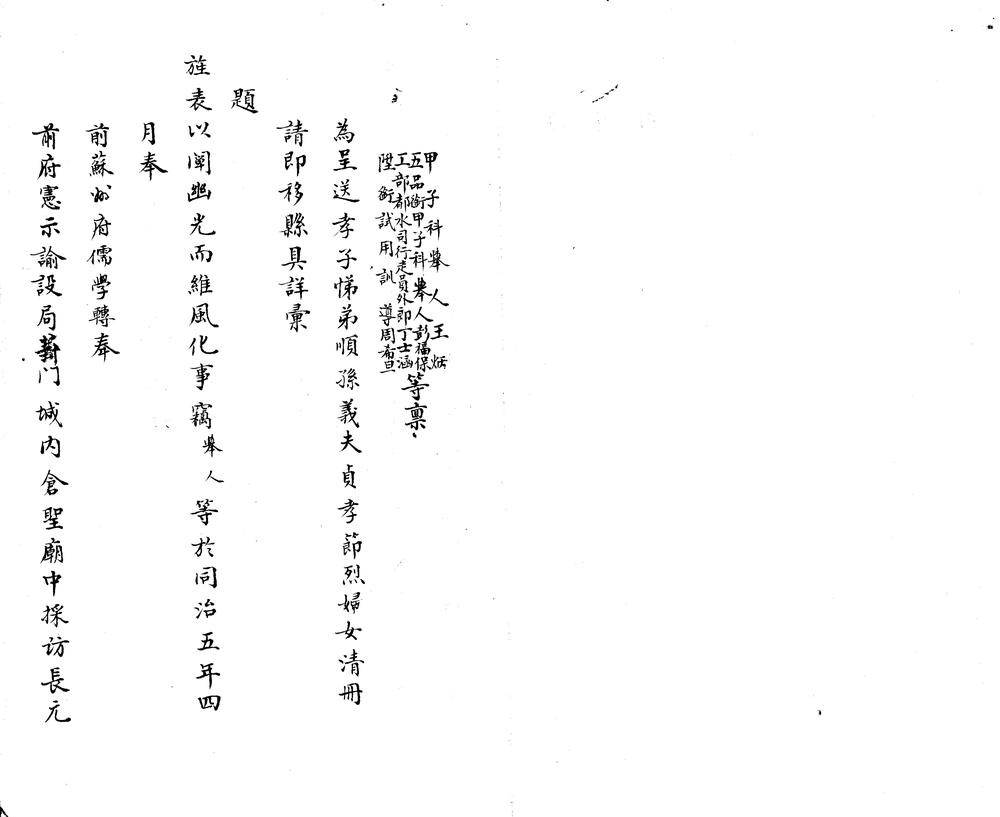 甲子科舉人王炳
五品銜甲子科舉人彭福保
工部都水司行走員外郎丁士涵
陞銜試用訓導周希旦
等稟
為呈送孝子悌弟順孫義夫貞孝節烈婦女清冊
請即移縣具詳彙
題
旌表以闡幽光而維風化事竊舉人等於同治五年四
月奉
前蘇州府儒學轉奉
前府憲示諭設局葑门城内倉聖廟中採访長元